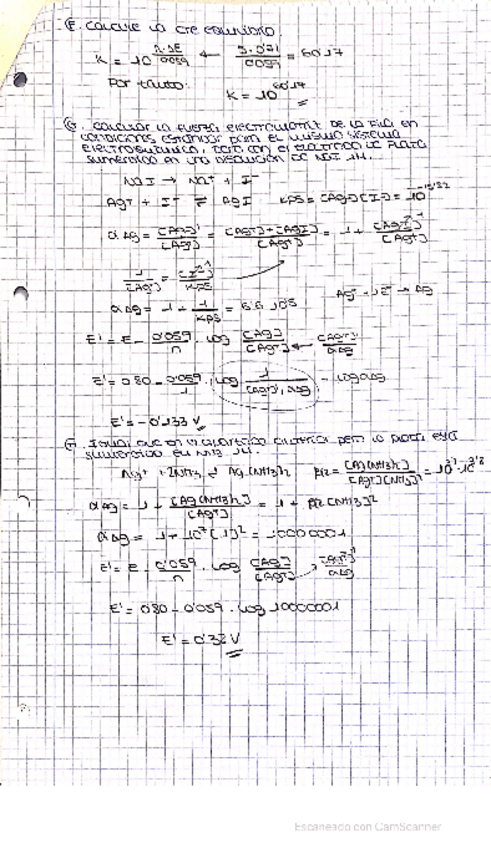 F. Calcule la cte equilibrio.
K = 10^(n·ΔE/0'059) ← /0'059 = 60'17
Por tanto:
K = 10^60'17
G. Calcular la fuerza electromotriz de la pila en
condiciones estándar para el mismo sistema
electroquímico, pero con el electrodo de plata
sumergido en una disolución de NaI 1M.
NaI → Na⁺ + I⁻
Ag⁺ + I⁻ ⇌ AgI KPS = [Ag⁺][I⁻] = 10
αAg = [Ag]'/[Ag⁺] = [Ag⁺]+[AgI]/[Ag⁺] = 1 +
αAg = 1 + 1/KPS =
Ag⁺ + 1e⁻ → Ag
E' = E - 0'059/n · log [Ag]/[Ag⁺] ← [Ag⁺]'/αAg
E' = 0'80 - 0'059/1 · log 1/[Ag⁺]'·αAg - log αAg
E' = -0'133 V
Igual que en el apartado anterior pero la plata está
sumergido en NH₃ 1M.
Ag⁺ + 2NH₃ ⇌ Ag(NH₃)₂ β₂ = [Ag(NH₃)₂]/[Ag⁺][NH₃]² =
αAg = 1 + [Ag(NH₃)₂]/[Ag⁺] = 1 + β₂[NH₃]²
αAg = 1 + 10⁷(1)² = 10000001
E' = E - 0'059/n · log [Ag]/[Ag⁺] → [Ag⁺]'/αAg
E' = 0'80 - 0'059 · log 10000001
E' = V
Escaneado con CamScanner